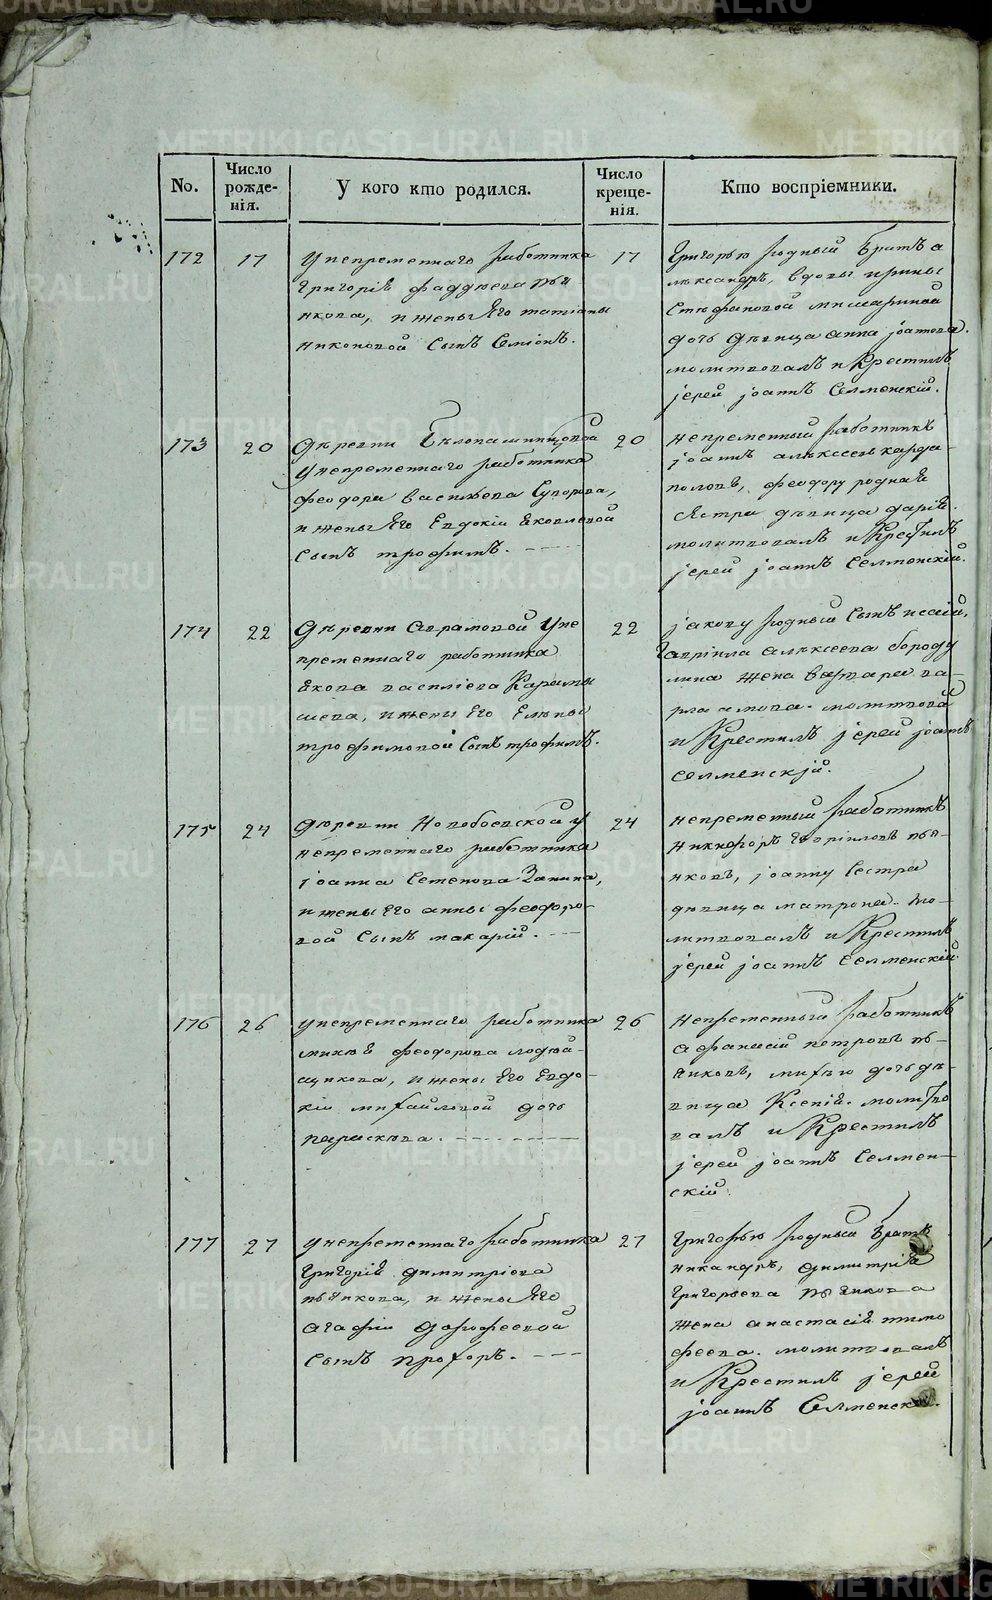 No.
Число рожде-нія.
У кого кто родился.
Число креще-нія.
Кто воспріемники.
172
17
Унепременнаго работника
Григорія фаддѣева пья
нкова, и жены Его татіаны
никоновой Сынъ Сѵміонъ.
17
Григорью родный братъ а
лѣксандръ, вдовы ирины
Стѣфановой
дочь дѣвица анна іоаннова.
молитвовалъ и Крестилъ
іерей іоаннъ Селменскій.
173
20
Дѣревни Бѣлопашинцовой
Унепременнаго работника
феодора василѣева Суворова,
и жены Его Евдокіи Яковлевой
Сынъ трофимъ.
20
непременный работникъ
іоаннъ алѣксеевъ карда
половъ, феодору родная
Сестра дѣвица дарія.
молитвовалъ и Крестилъ
іерей іоаннъ Селменскій.
174
22
Дѣревни Аврамовой Уне
пременнаго работника
Якова василіева Карамы
шева, и жены Его Елѣны
трофимовой Сынъ трофимъ.
22
іакову родный Сынъ исаій,
Гавріила алѣксеева бороду
лина жена варвара ва-
рламова. молитвовал
и Крестилъ іерей іоаннъ
Селменскій.
175
24
Дѣревни Новобоевской у
непременнаго работника
іоанна Семенова Занина,
и жены Его анны феодоро-
вой Сынъ макарій.
24
непременный работникъ
никифоръ Гавріиловъ пья-
нковъ, іоанну Сестра
дѣвица матрона. мо-
литвовалъ и Крестилъ
іерей іоаннъ Селменскій.
176
26
унепременнаго работника
михея феодорова
щикова, и жены Его Евдо-
кіи михайловой дочь
параскѣва.
26
Непременный работникъ
Афанасій петровъ
михѣю дочь дѣ-
вица Ксенія. молитво
валъ и Крестилъ
іерей іоаннъ Селмен-
скій.
177
27
унепременнаго работника
Григорія димитріева
пьянкова, и жены Его
агафіи дорофеевой
Сынъ прохоръ.
27
Григорью родный братъ
никандръ, димитрія
Григорьева пьянкова
жена анастасія тимо
феева. молитвовалъ
и Крестилъ іерей
іоаннъ Селменскій.
METRIKI.GASO-URAL.RU